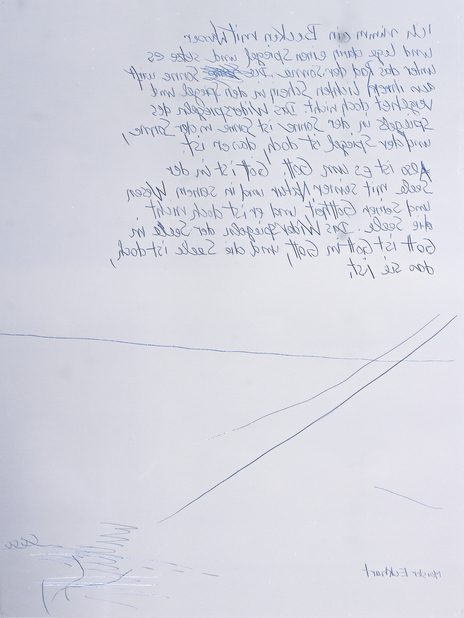 Ich nimm ein Becken mit Wasser
und lege darin einen Spiegel und setze es
unter das Rad der Sonne. Die Sonne wirft
aus ihren lichten Schein in den Spiegel und
vergehet doch nicht. Das Widerspiegeln des
Spiegels in der Sonne ist Sonne in der Sonne,
und der Spiegel ist doch, das er ist.
Also ist es um Gott. Gott ist in der
Seele mit seiner Natur und in seinem Wesen
und seiner Gottheit und er ist doch nicht
die Seele. Das Widerspiegeln der Seele in
Gott ist Gott in Gott, und die Seele ist doch,
das sie ist.
Meister Eckhart